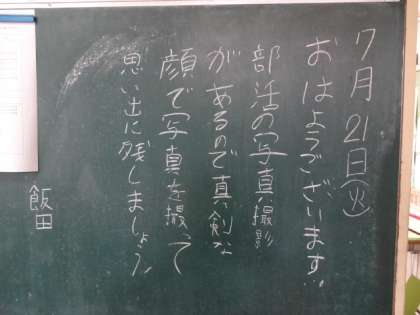 7月21日(火)
おはようございます。
部活の写真撮影
があるので真剣な
顔で写真を撮って
思い出に残しましょう。
飯田